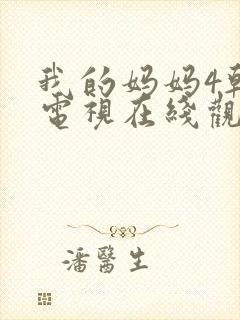 我的妈妈4韩
電視在綫觀
潘醫生